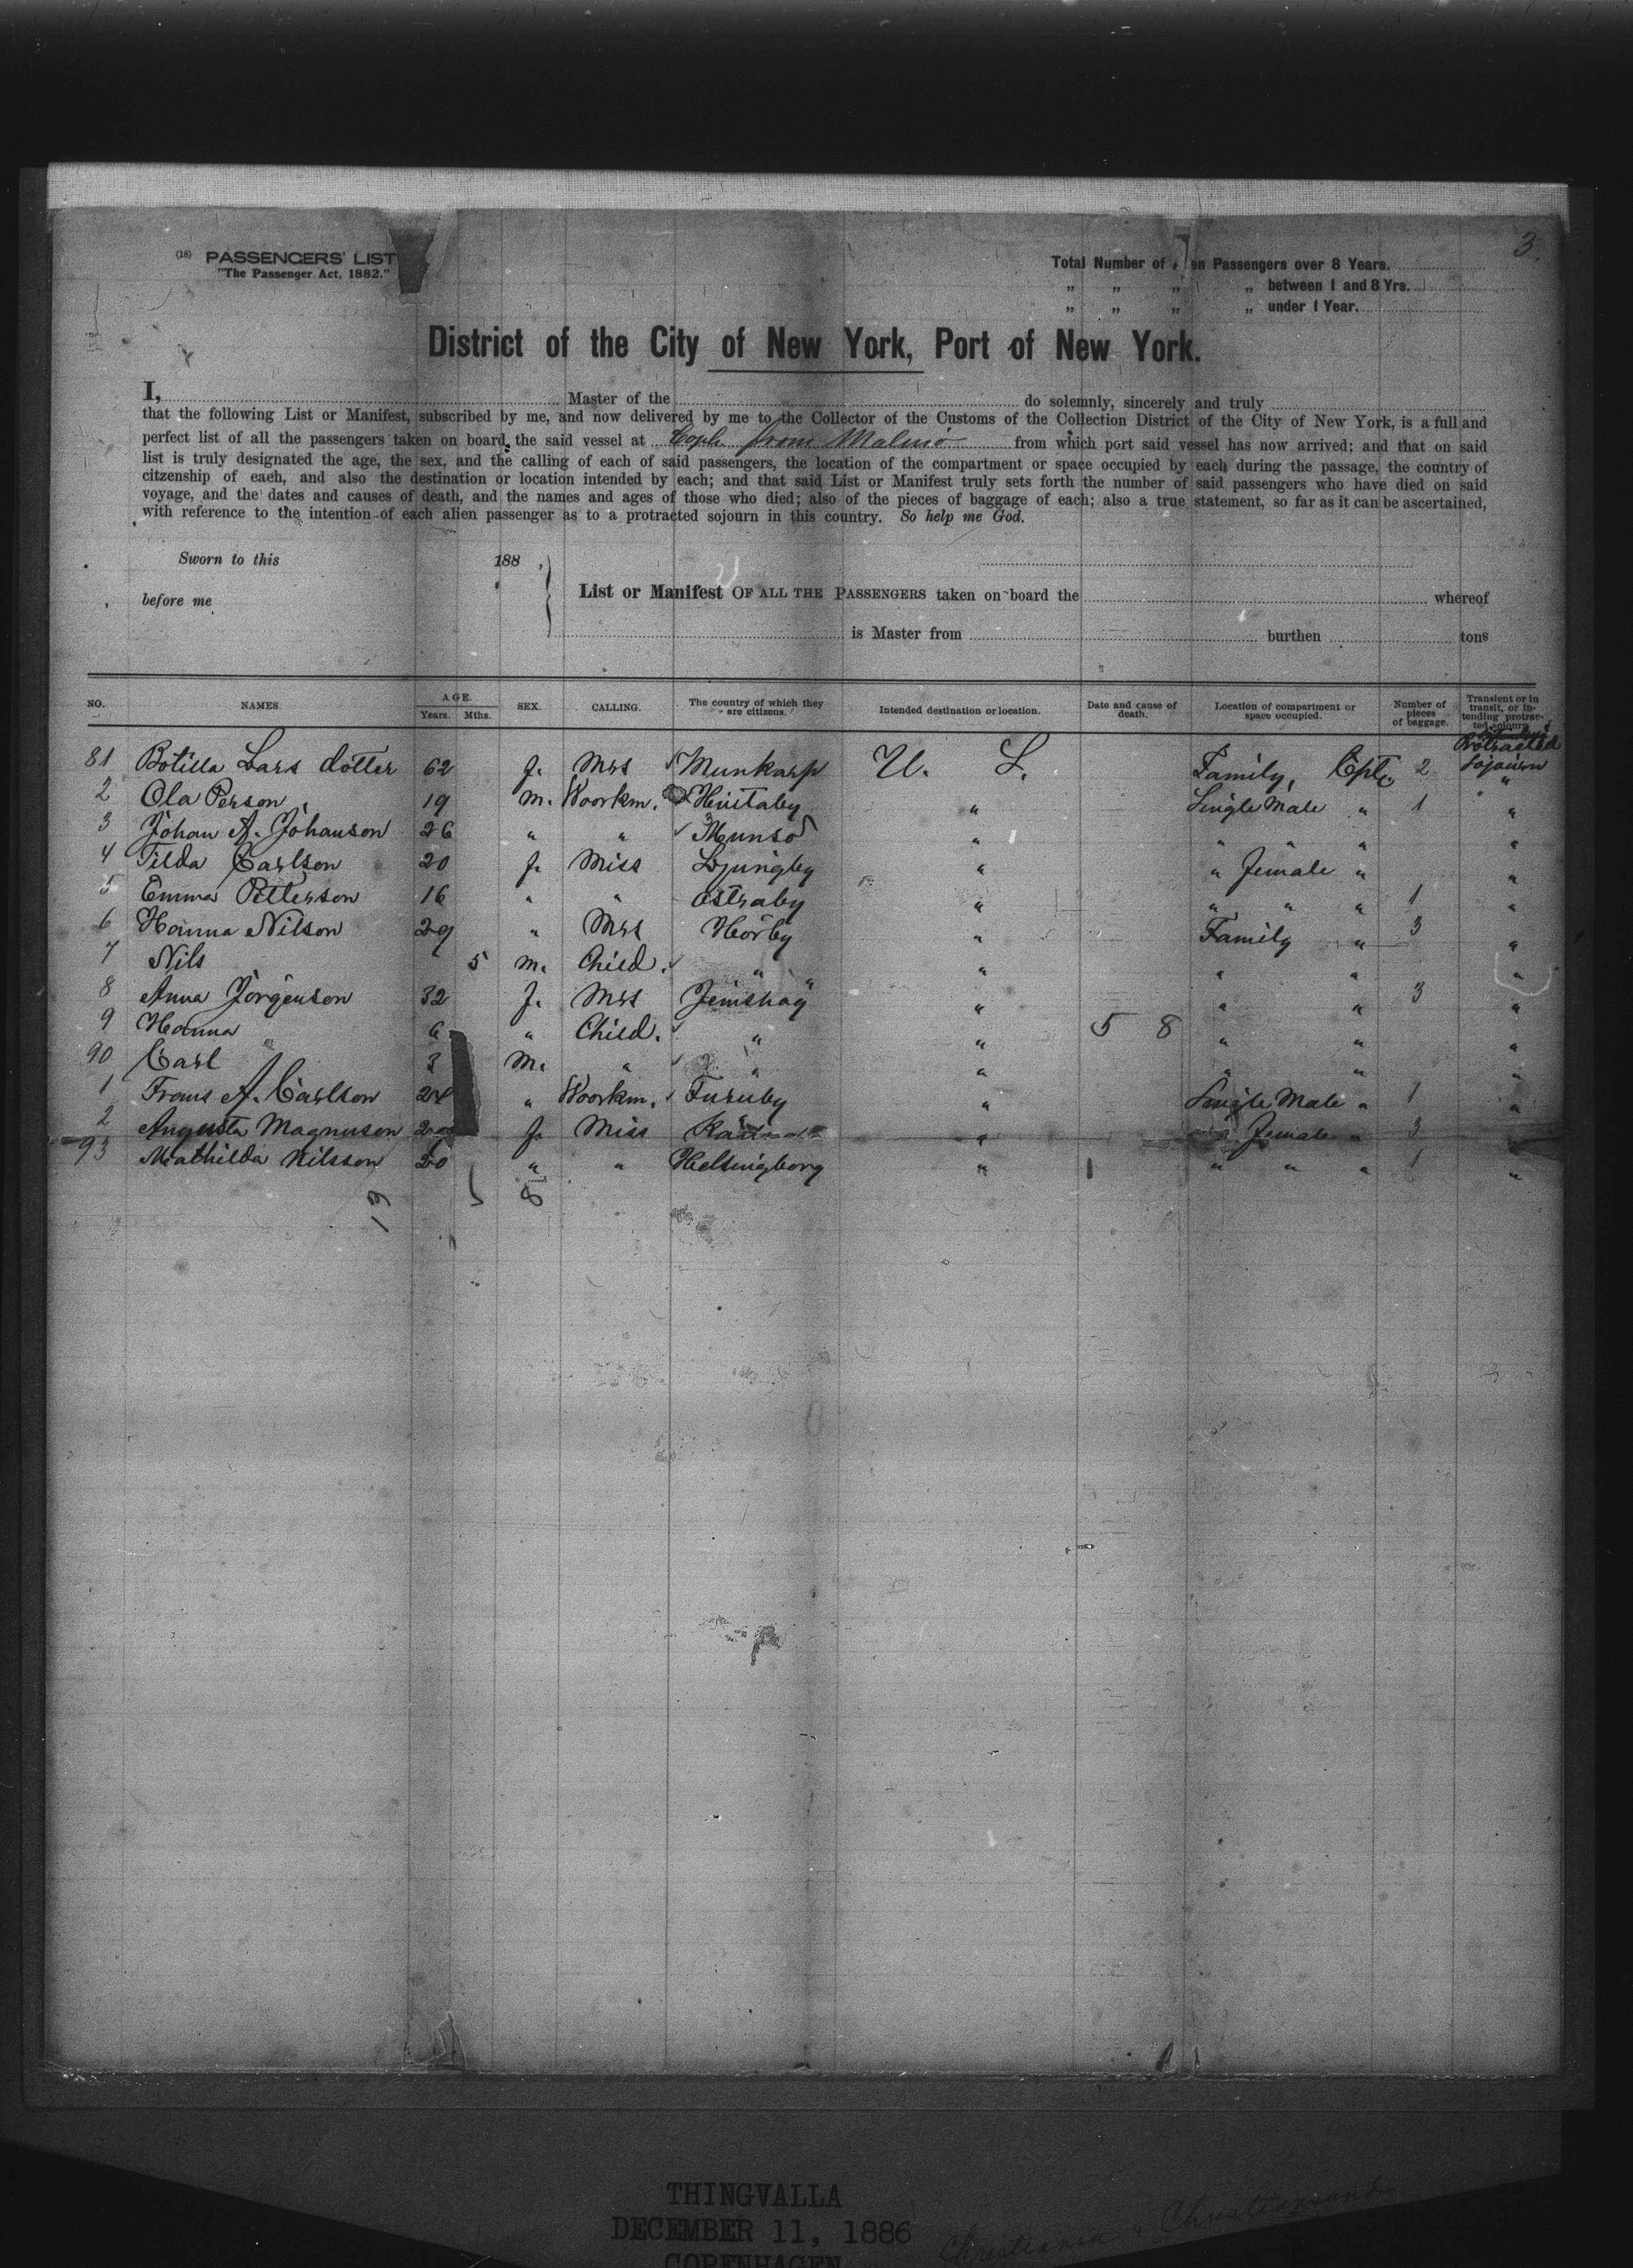 3.
(18) PASSENGERS' LIST
"The Passenger Act, 1882."
Total Number of en Passengers over 8 Years.
„ „ „ „ between 1 and 8 Yrs.
„ „ „ „ under 1 Year.
District of the City of New York, Port of New York.
I, Master of the do solemnly, sincerely and truly
that the following List or Manifest, subscribed by me, and now delivered by me to the Collector of the Customs of the Collection District of the City of New York, is a full and
perfect list of all the passengers taken on board the said vessel at Coph. from Malmö from which port said vessel has now arrived; and that on said
list is truly designated the age, the sex, and the calling of each of said passengers, the location of the compartment or space occupied by each during the passage, the country of
citzenship of each, and also the destination or location intended by each; and that said List or Manifest truly sets forth the number of said passengers who have died on said
voyage, and the dates and causes of death, and the names and ages of those who died; also of the pieces of baggage of each; also a true statement, so far as it can be ascertained,
with reference to the intention of each alien passenger as to a protracted sojourn in this country. So help me God.
Sworn to this 188 ,
before me
List or Manifest OF ALL THE PASSENGERS taken on board the whereof
is Master from burthen tons
NO. NAMES. AGE. Years. Mths. SEX. CALLING. The country of which they are citizens. Intended destination or location. Date and cause of death. Location of compartment or space occupied. Number of pieces of baggage. Transient or in transit, or intending protracted sojourn
81 Botilla Lars dotter 62 f. Mrs Munkarp U. S. Family, Cpt. 2 Protracted Sojourn
2 Ola Person 19 m. Woorkm. " Single Male " 1 "
3 Johan A. Johanson 26 " " Munsö " " " " "
4 Tilda Carlson 20 f. Miss Ljungby " " Female " "
5 Emma Petterson 16 " " Östraby " " " " 1 "
6 Hanna Nilson 29 " Mrs Hörby " Family " 3 "
7 Nils 5 m. Child. " " " " " "
8 Anna Jörgenson 32 f. Mrs Jemshög " " " 3 "
9 Hanna 6 " Child. " " 5 8 " " "
90 Carl " 3 m. " " " " " "
1 Frans A. Carlson 24 " Woorkm. Furuby " Single Male " 1 "
2 Augusta Magnuson f. Miss " " Female " 3 "
93 Mathilda Nilsson 20 " " Helsingborg " " " " 1 "
13 5 8
THINGVALLA
DECEMBER 11, 1886
COPENHAGEN
Christiania & Christiansand